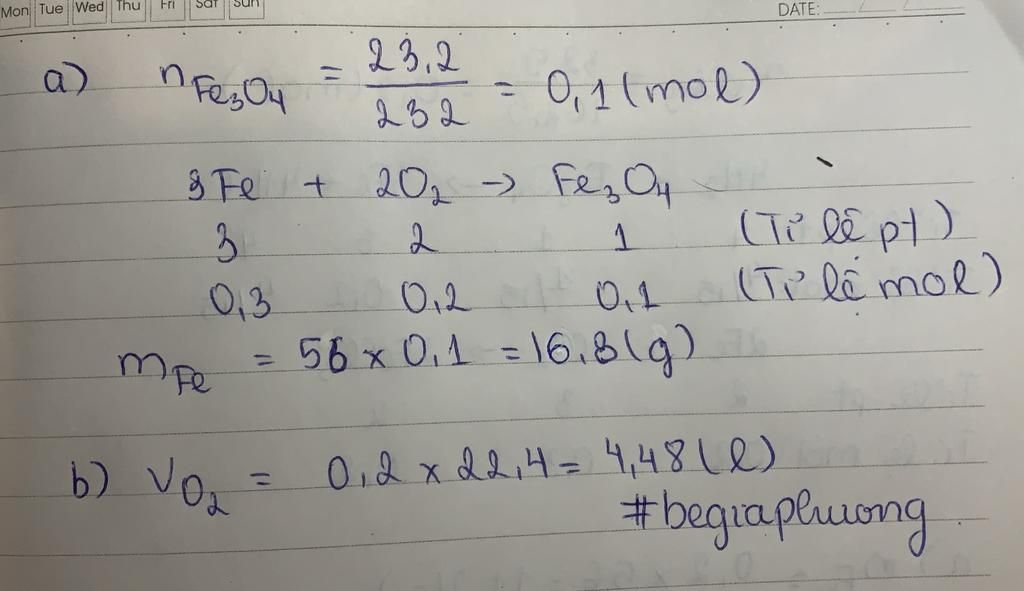 Mon Tue Wed Thu Fri Sat Sun DATE:
a) nFe₃O₄ = 23,2/232 = 0,1 (mol)
3Fe + 2O₂ → Fe₃O₄
3 2 1 (Tỉ lệ pt)
0,3 0,2 0,1 (Tỉ lệ mol)
mFe = 56 x 0,1 = 16,8 (g)
b) VO₂ = 0,2 x 22,4 = 4,48 (l)
#begiaphuong